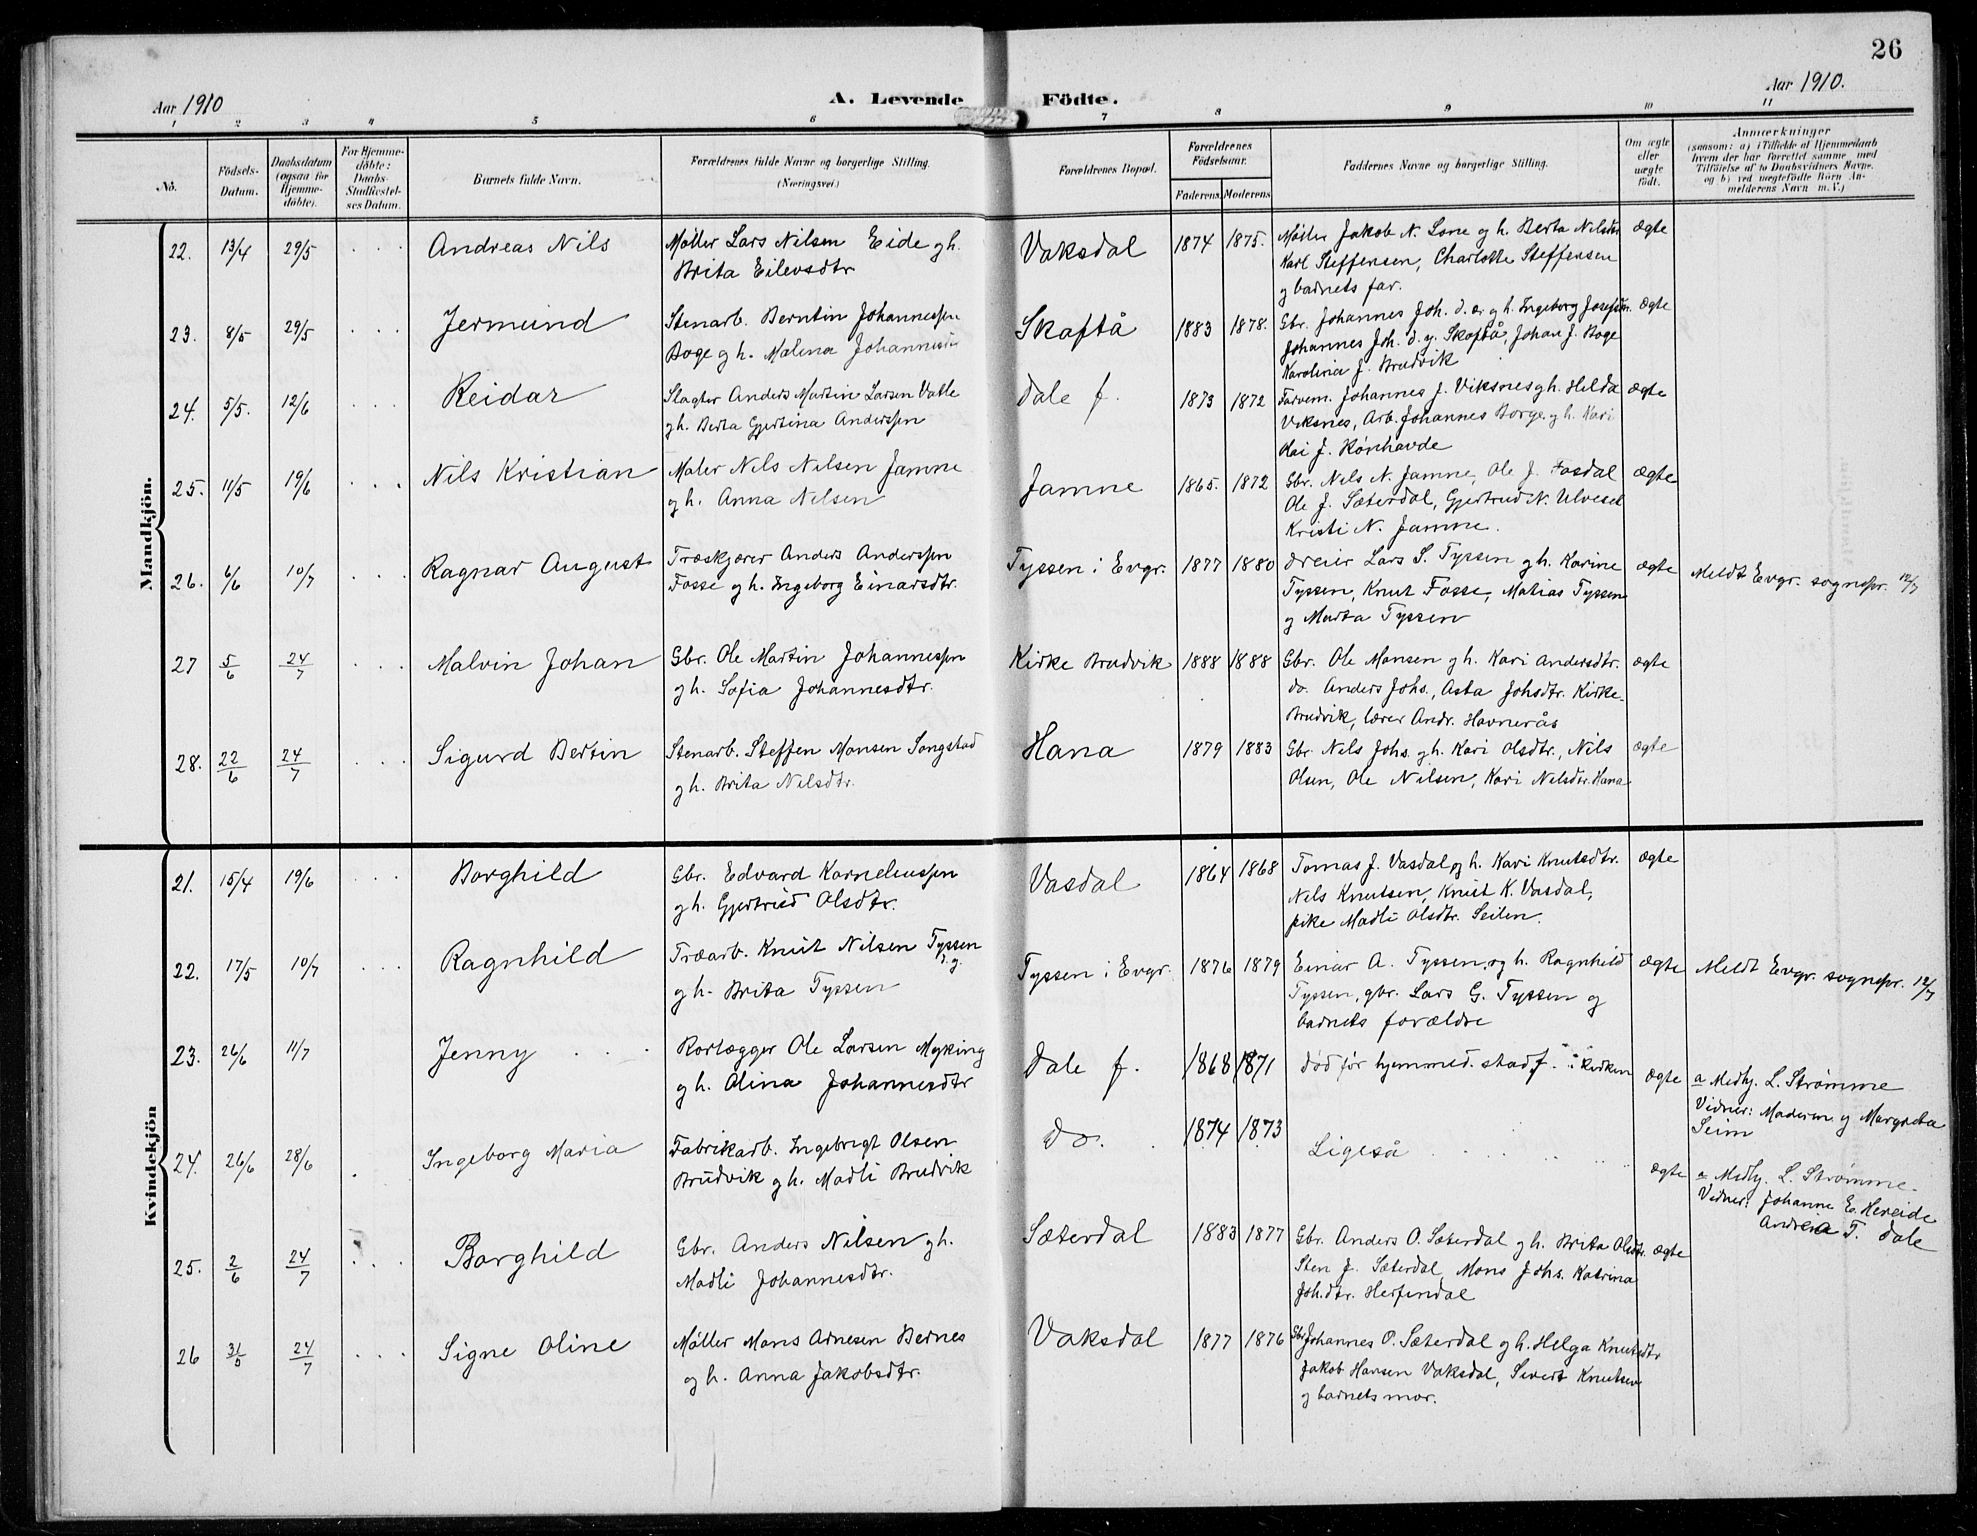 26
Aar 1910
A. Levende Födte.
Aar 1910.
1 2 3 4 5 6 7 8 9 10 11
No.
Födsels-
Datum.
Daabsdatum
(ogsaa for
Hjemme-
döbte).
For Hjemme-
döbte:
Daabs-
Stadfæstel-
ses Datum.
Barnets fulde Navn.
Forældrenes fulde Navne og borgerlige Stilling.
(Næringsvei.)
Forældrenes Bopæl.
Forældrenes
Födselsaar.
Faderens. Moderens
Faddernes Navne og borgerlige Stilling.
Om ægte
eller
uægte
födt.
Anmærkninger
(saasom: a) i Tilfælde af Hjemmedaab
hvem der har forrettet samme med
Tilföielse af to Daabsvidners Navne.
og b) ved uægtefödte Börn An-
melderens Navn m. V.)
Mandkjön.
22. 13/4 29/5 . . . Andreas Nils
Møller Lars Nilsen Eide g h.
Brita Eilevsdtr
Vaksdal 1874 1875.
Møller Jakob N. Lone g h. Berta Nilsdtr
Karl Steffensen, Charlotte Steffensen
g barnets far.
ægte
23. 8/5 29/5 . . . Jermund
Stenarb. Berntin Johannessen
Boge g h. Malena Johannesdtr
Skaftå 1883 1878.
Gbr. Johannes Joh. d. æ. g h. Ingeborg Josefsdtr.
Johannes Joh. d. y. Skaftå, Johan J. Boge
Karolina J. Brudvik
ægte
24. 5/5. 12/6 . . . Reidar
Slagter Anders Martin Larsen Valle
g h. Berta Gjertina Anderssen
Dale f. 1873 1872
Farvem. Johannes J. Viksnes g h. Helda
Viksnes, Arb. Johannes Borge g h. Kari
Kai J. Rønhavde
ægte
25. 11/5 19/6 . . . Nils Kristian
Maler Nils Nilsen Jamne
g h. Anna Nilsen
Jamne 1865. 1872
Gbr. Nels N. Jamne, Ole J. Fosdal
Ole J. Sæterdal, Gjertrud N. Ulveset
Kristi N. Jamne.
ægte
26. 6/6 10/7 . . . Ragnar August
Træskjærer Anders Anderssen
Fosse g h. Ingeborg Einarsdtr.
Tyssen i Evgr. 1877 1880
Dreier Lars S. Tyssen g h. Karine
Tyssen, Knut Fosse, Matias Tyssen
g Marta Tyssen
ægte
Meldt Evgr. sognepr. 12/7
27 5/6 24/7 . . . Malvin Johan
Gbr. Ole Martin Johannessen
g h. Sofia Johannesdtr.
Kirke Brudvik 1888 1888
Gbr. Ole Monsen g h. Kari Andersdtr.
do. Anders Johs., Asta Johsdtr. Kirke-
Brudvik, lærer Andr. Havnerås
ægte
28. 22/6 24/7 . . . Sigurd Bertin
Stenarb. Steffen Monsen Songstad
g h. Brita Nelsdtr.
Hana 1879 1883
Gbr. Nels Johs. g h. Kari Olsdtr., Nils
Olsen, Ole Nilsen, Kari Nelsdtr. Hana
ægte
Kvindekjön
21. 15/4 19/6 . . . Borghild
Gbr. Edvard Korneliussen
g h. Gjertrud Olsdtr.
Vasdal 1864 1868
Tomas J. Vasdal g h. Kari Knutsdtr.
Nils Knutsen, Knut K. Vasdal,
pike Madli Olsdtr. Seilen.
ægte
22. 17/5 10/7 . . . Ragnhild
Træarb. Knut Nilsen Tyssen
g h. Brita Tyssen
Tyssen i Evgr. 1876 1879
Einar A. Tyssen, g h. Ragnhild
Tyssen, gbr. Lars G. Tyssen g
barnets forældre
ægte
Meldt Evgr. sognepr. 12/7
23. 26/6 11/7 Jenny . . .
Rørlægger Ole Larsen Myking
g h. Olina Johannesdtr
Dale f. 1868 1871
Død før hjemmed. stadf. i kirken
ægte
a Medhj. L. Strømme
Vidner: Moderen g Margreta
Seim
24. 26/6 28/6 . Ingeborg Maria
Fabrikarb. Ingebrigt Olsen
Brudvik g h. Madli Brudvik
Do. . 1874 1873
Ligeså . . . . .
ægte
a Medhj. L. Strømme.
Vidner: Johanne E. Hereide
Andrea T. Dale
25. 2/6 24/7 . . . Borghild
Gbr. Anders Nilsen g h.
Madli Johannesdtr.
Sæterdal 1883 1877
Gbr. Anders O. Sæterdal g h. Brita Olsdtr.
Sten J. Sæterdal, Mons Johs. Katrina
Joh.dtr. Herfindal
ægte
26 31/5 24/7 . . . Signe Oline
Møller Mons Arnesen Bernes
og h. Anna Jakobsdtr.
Vaksdal 1877 1876
Gbr Johannes O. Sæterdal g h. Helga Knutsdtr
Jakob Hansen Vaksdal, Sivert Knutsen
g barnets mor.